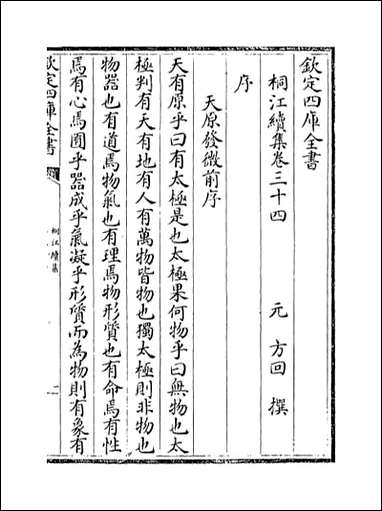 欽定四庫全書
桐江續集卷三十四
元 方回 撰
序
天原發微前序
天有原乎曰有太極是也太極果何物乎曰無物也太
極判有天有地有人有萬物皆物也獨太極則非物也
物器也有道焉物氣也有理焉物形質也有命焉有性
焉有心焉囿乎器成乎氣凝乎形質而為物則有象有
欽定四庫全書
桐江續集
二